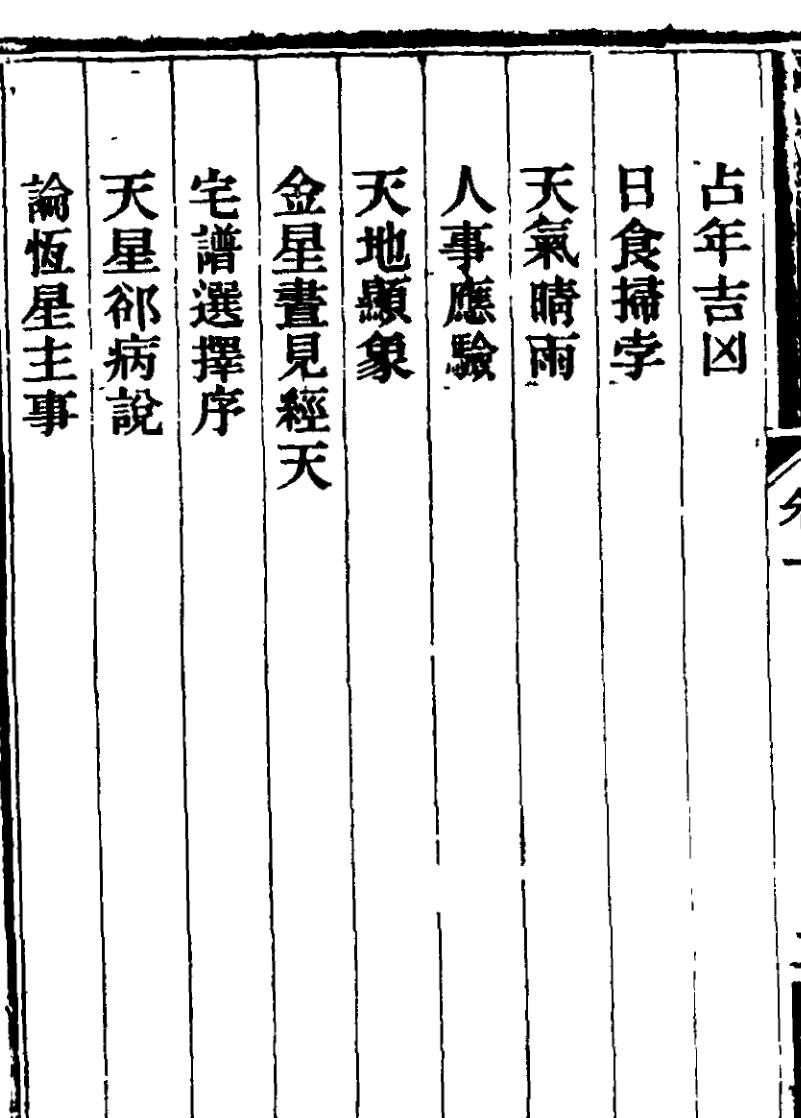 占年吉凶
日食掃孛
天氣晴雨
人事應驗
天地顯象
金星晝見經天
宅譜選擇序
天星卻病說
論恆星主事